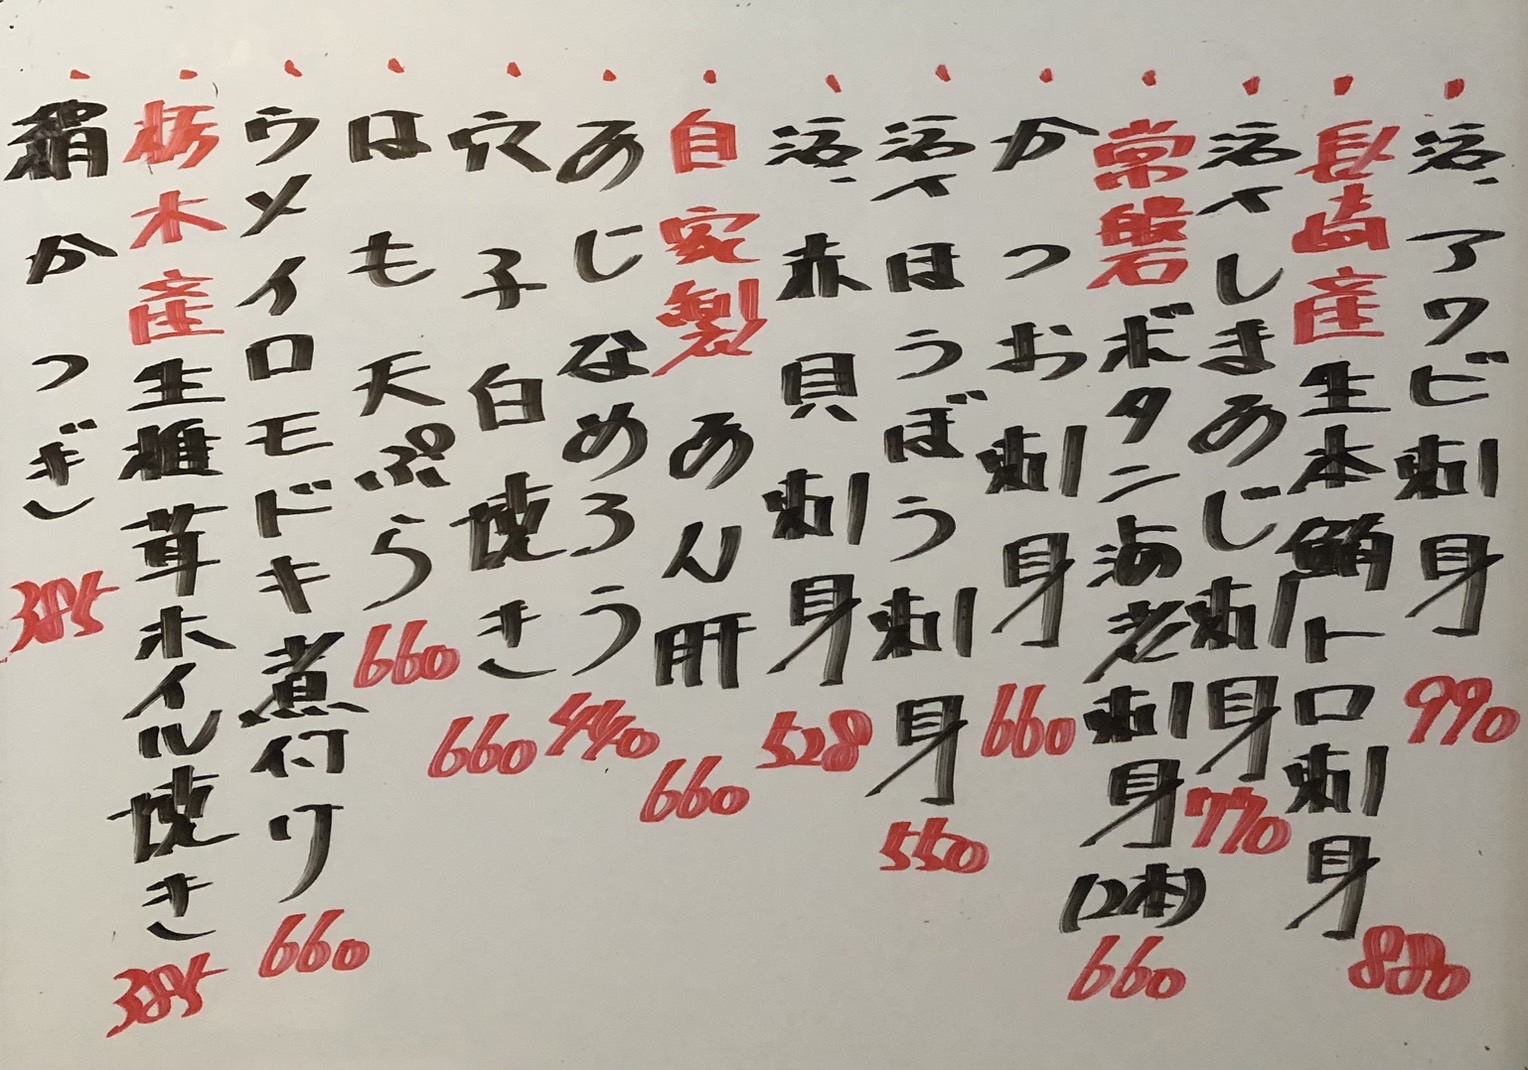 活、アワビ刺身 990
長崎産生本鮪トロ刺身 880
活〆しまあじ刺身 770
常磐ボタン海老刺身(2本) 660
かつお刺身 660
活〆ほうぼう刺身 550
活、赤貝刺身 528
自家製あん肝 660
あじなめろう 440
穴子白焼き 660
はも天ぷら 660
ウメイロモドキ煮付け 660
栃木産生椎茸ホイル焼き 385
絹かつぎ 385